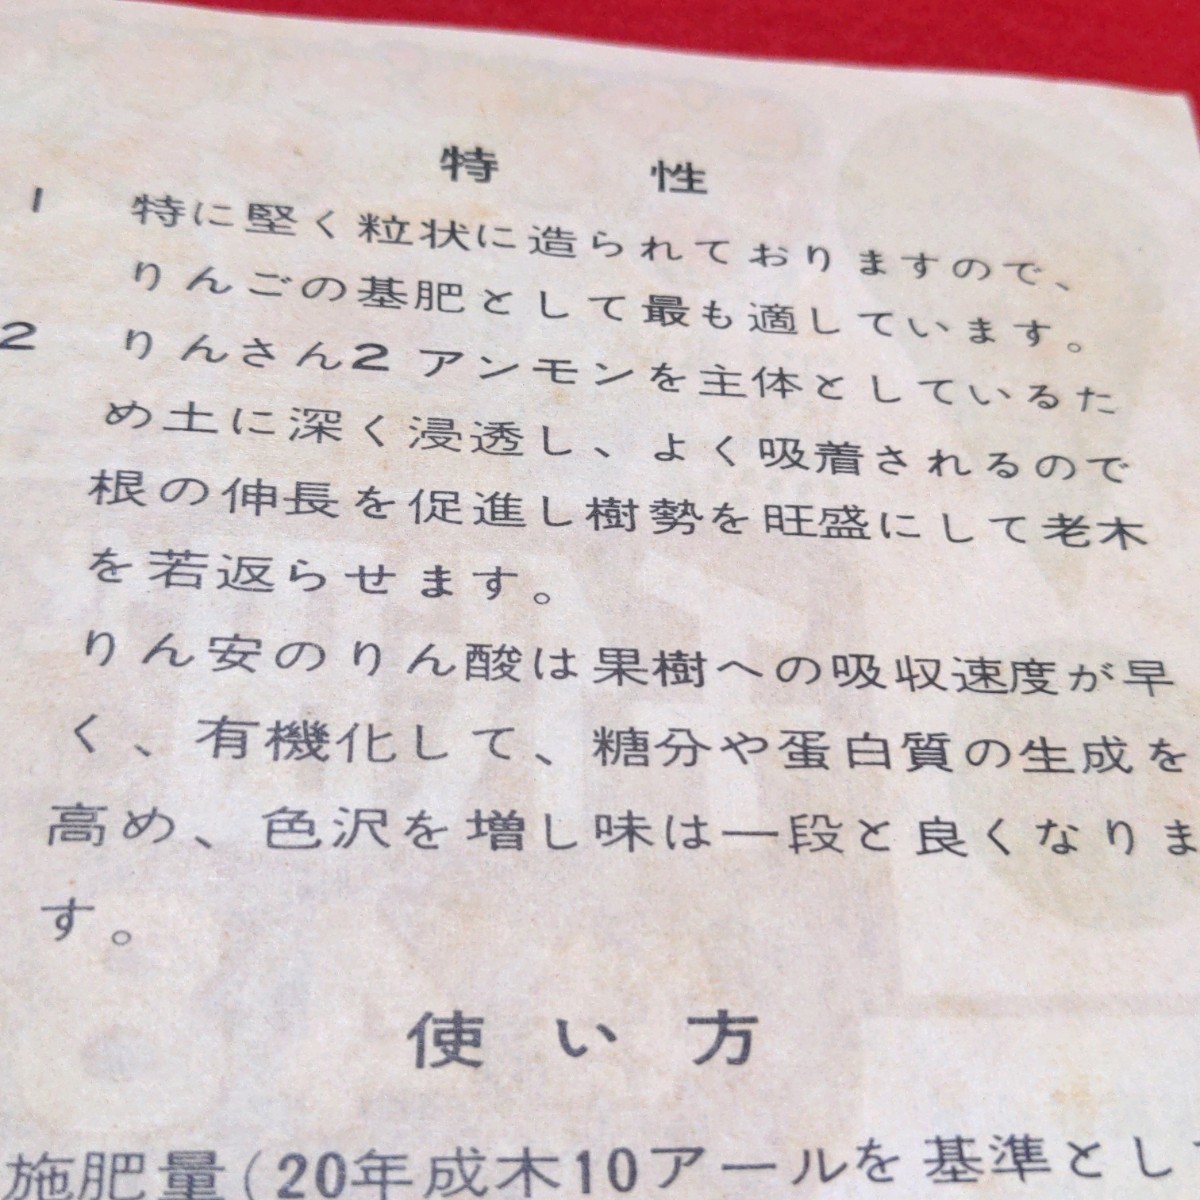 特性
1 特に堅く粒状に造られておりますので、
りんごの基肥として最も適しています。
2 りんさん2アンモンを主体としているた
め土に深く浸透し、よく吸着されるので
根の伸長を促進し樹勢を旺盛にして老木
を若返らせます。
りん安のりん酸は果樹への吸収速度が早
く、有機化して、糖分や蛋白質の生成を
高め、色沢を増し味は一段と良くなりま
す。
使い方
施肥量(20年成木10アールを基準とし